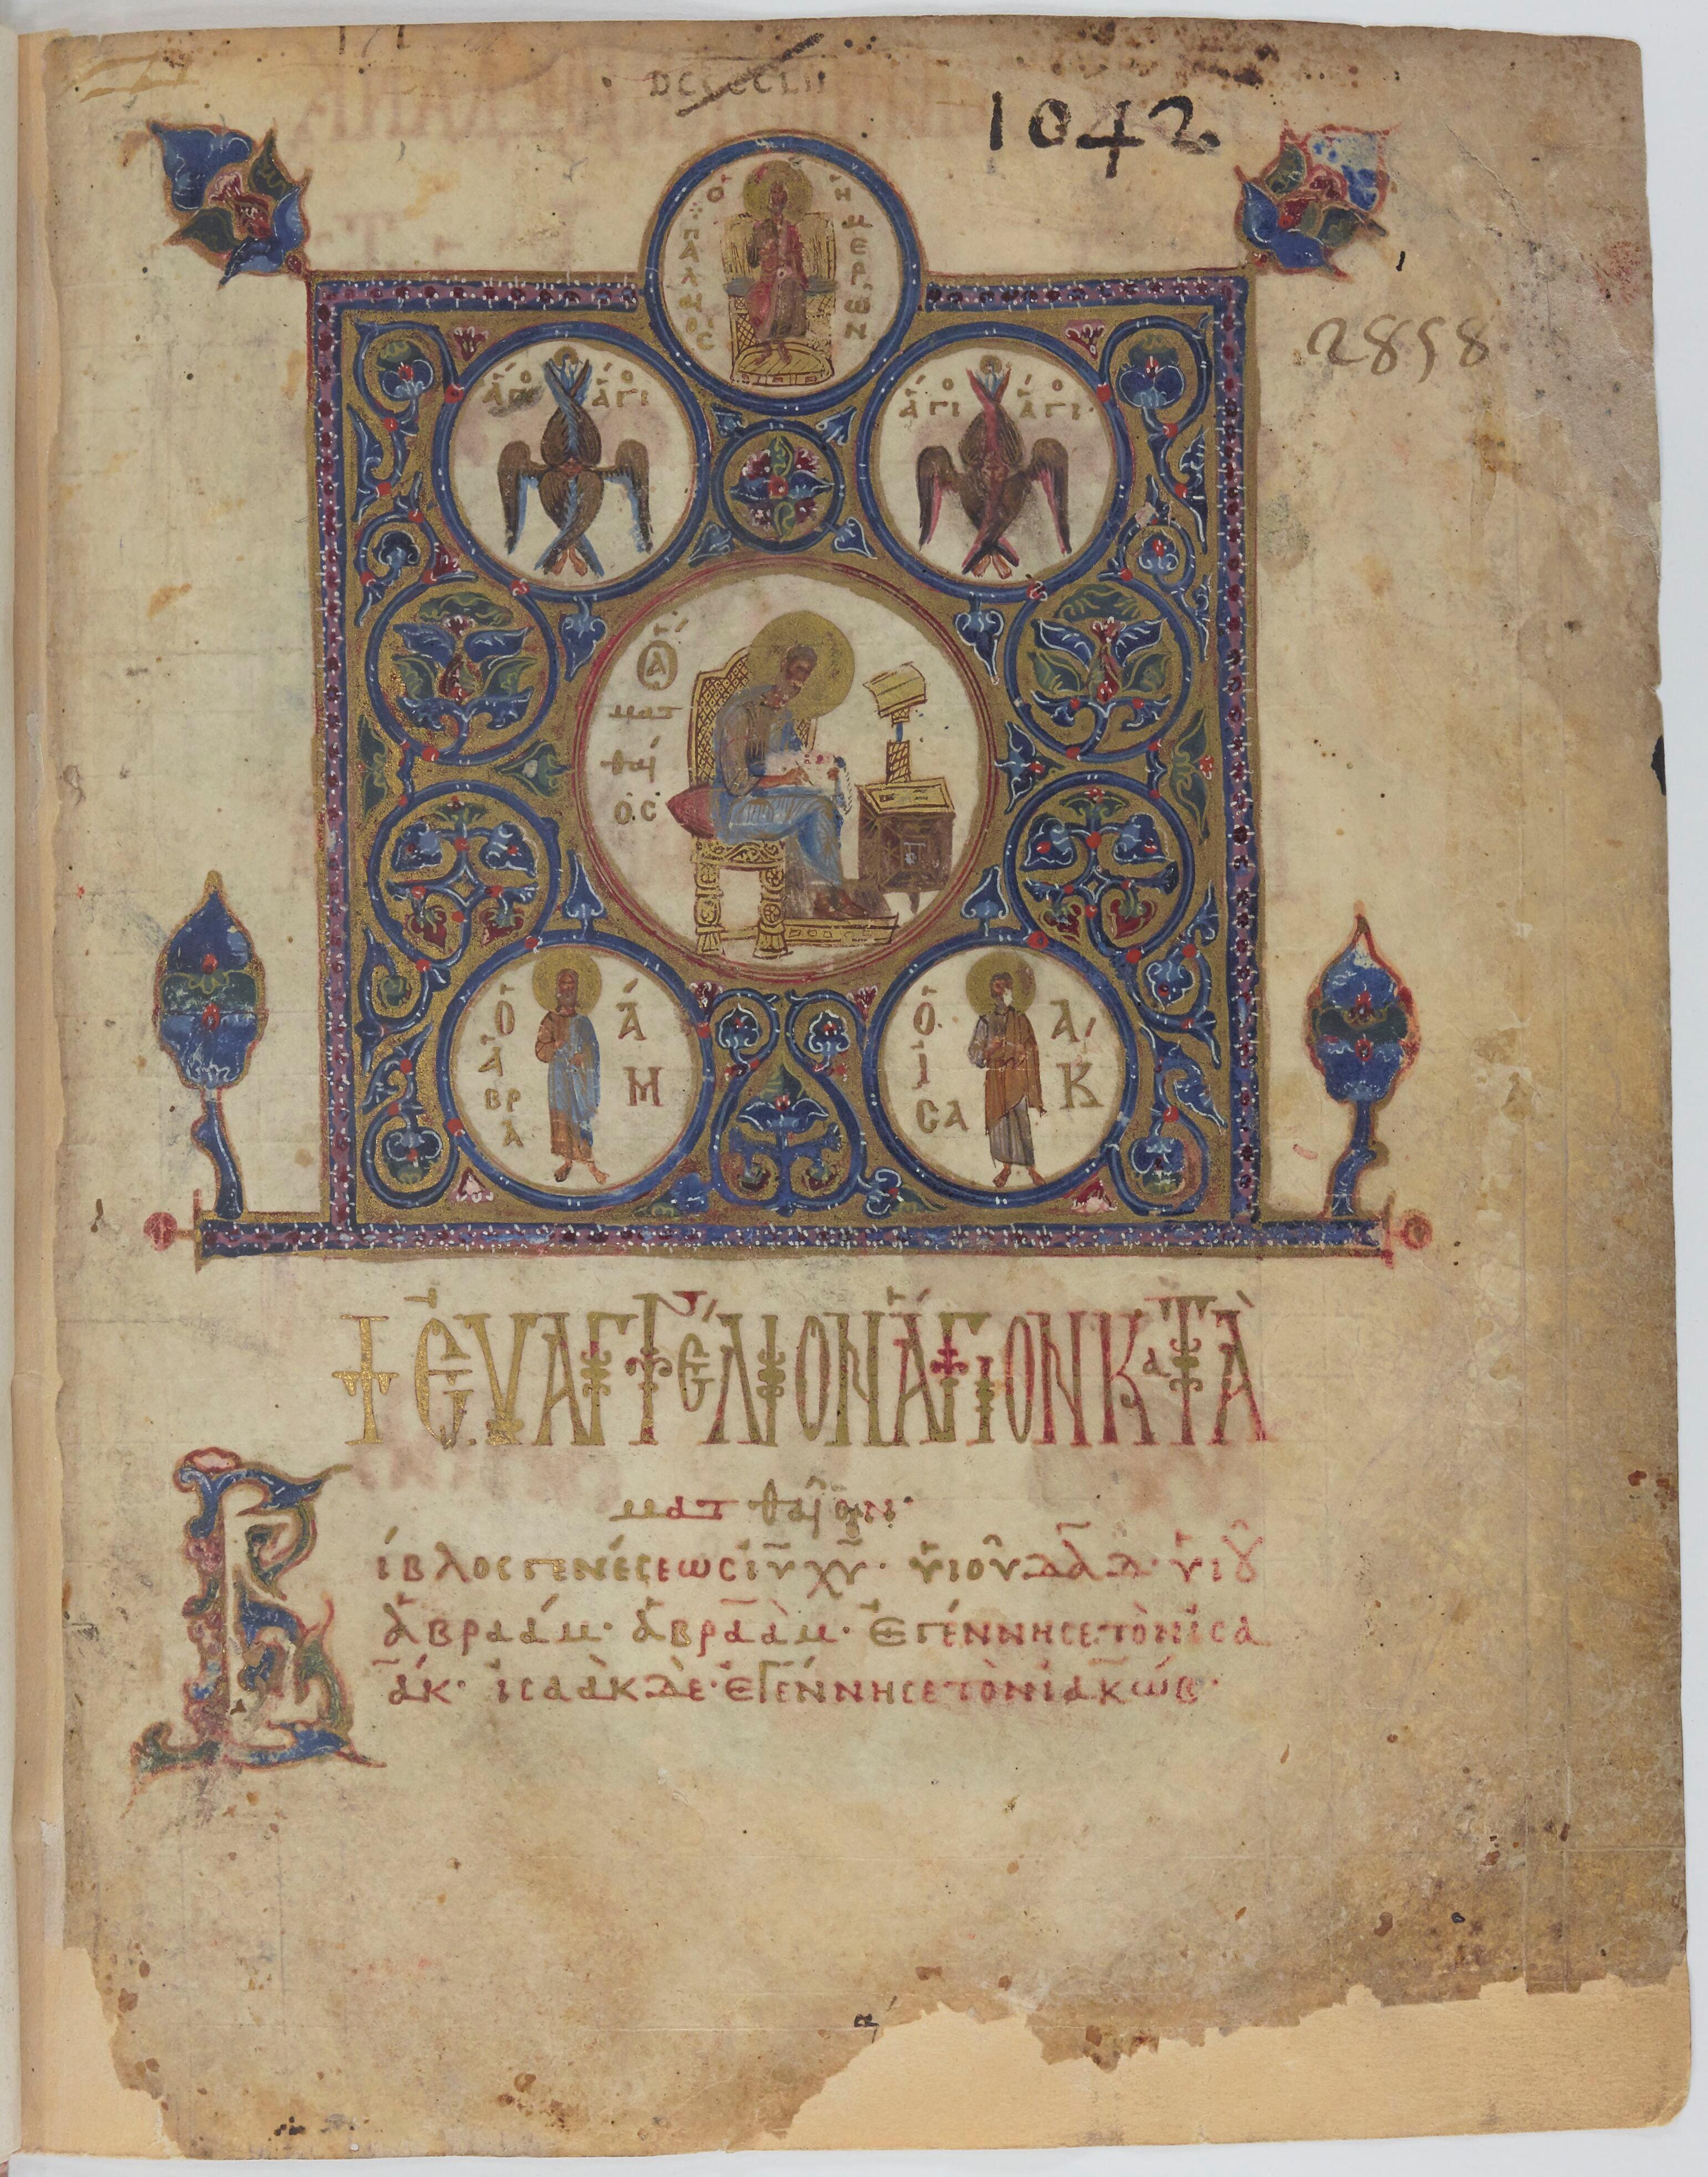 DCCCCLII
1042
2858
Ὁ παλαιὸς
ἡμερῶν
ἅγιο ἅγιο
ἅγιο ἅγιο
Ὁ ἅ
ματ
θαῖ
ος
Ὁ ἀβρα
άμ
Ὁ ἰσα
ακ
+ ΕΥΑΓΓΕΛΙΟΝ ἍΓΙΟΝ ΚαΤᾺ
ματθαῖον·
Βίβλος γενέσεως ἰυ χυ· ὑιοῦ δαδ· ὑιοῦ
ἀβραάμ· ἀβραὰμ· ἐγέννησε τὸν ἰσα
άκ· ἰσαὰκ δὲ· ἐγέννησε τὸν ἰακώβ·